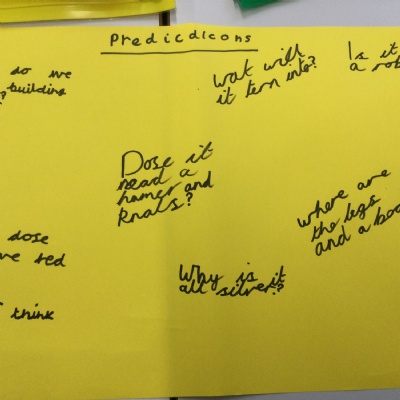 Predicdicons
do we
building
?
wat will
it tern into?
Is it
a rob
Dose it
nead a
hamer and
knals?
where are
the legs
and a bod
dose
ve red
Why is it
all silver?
think